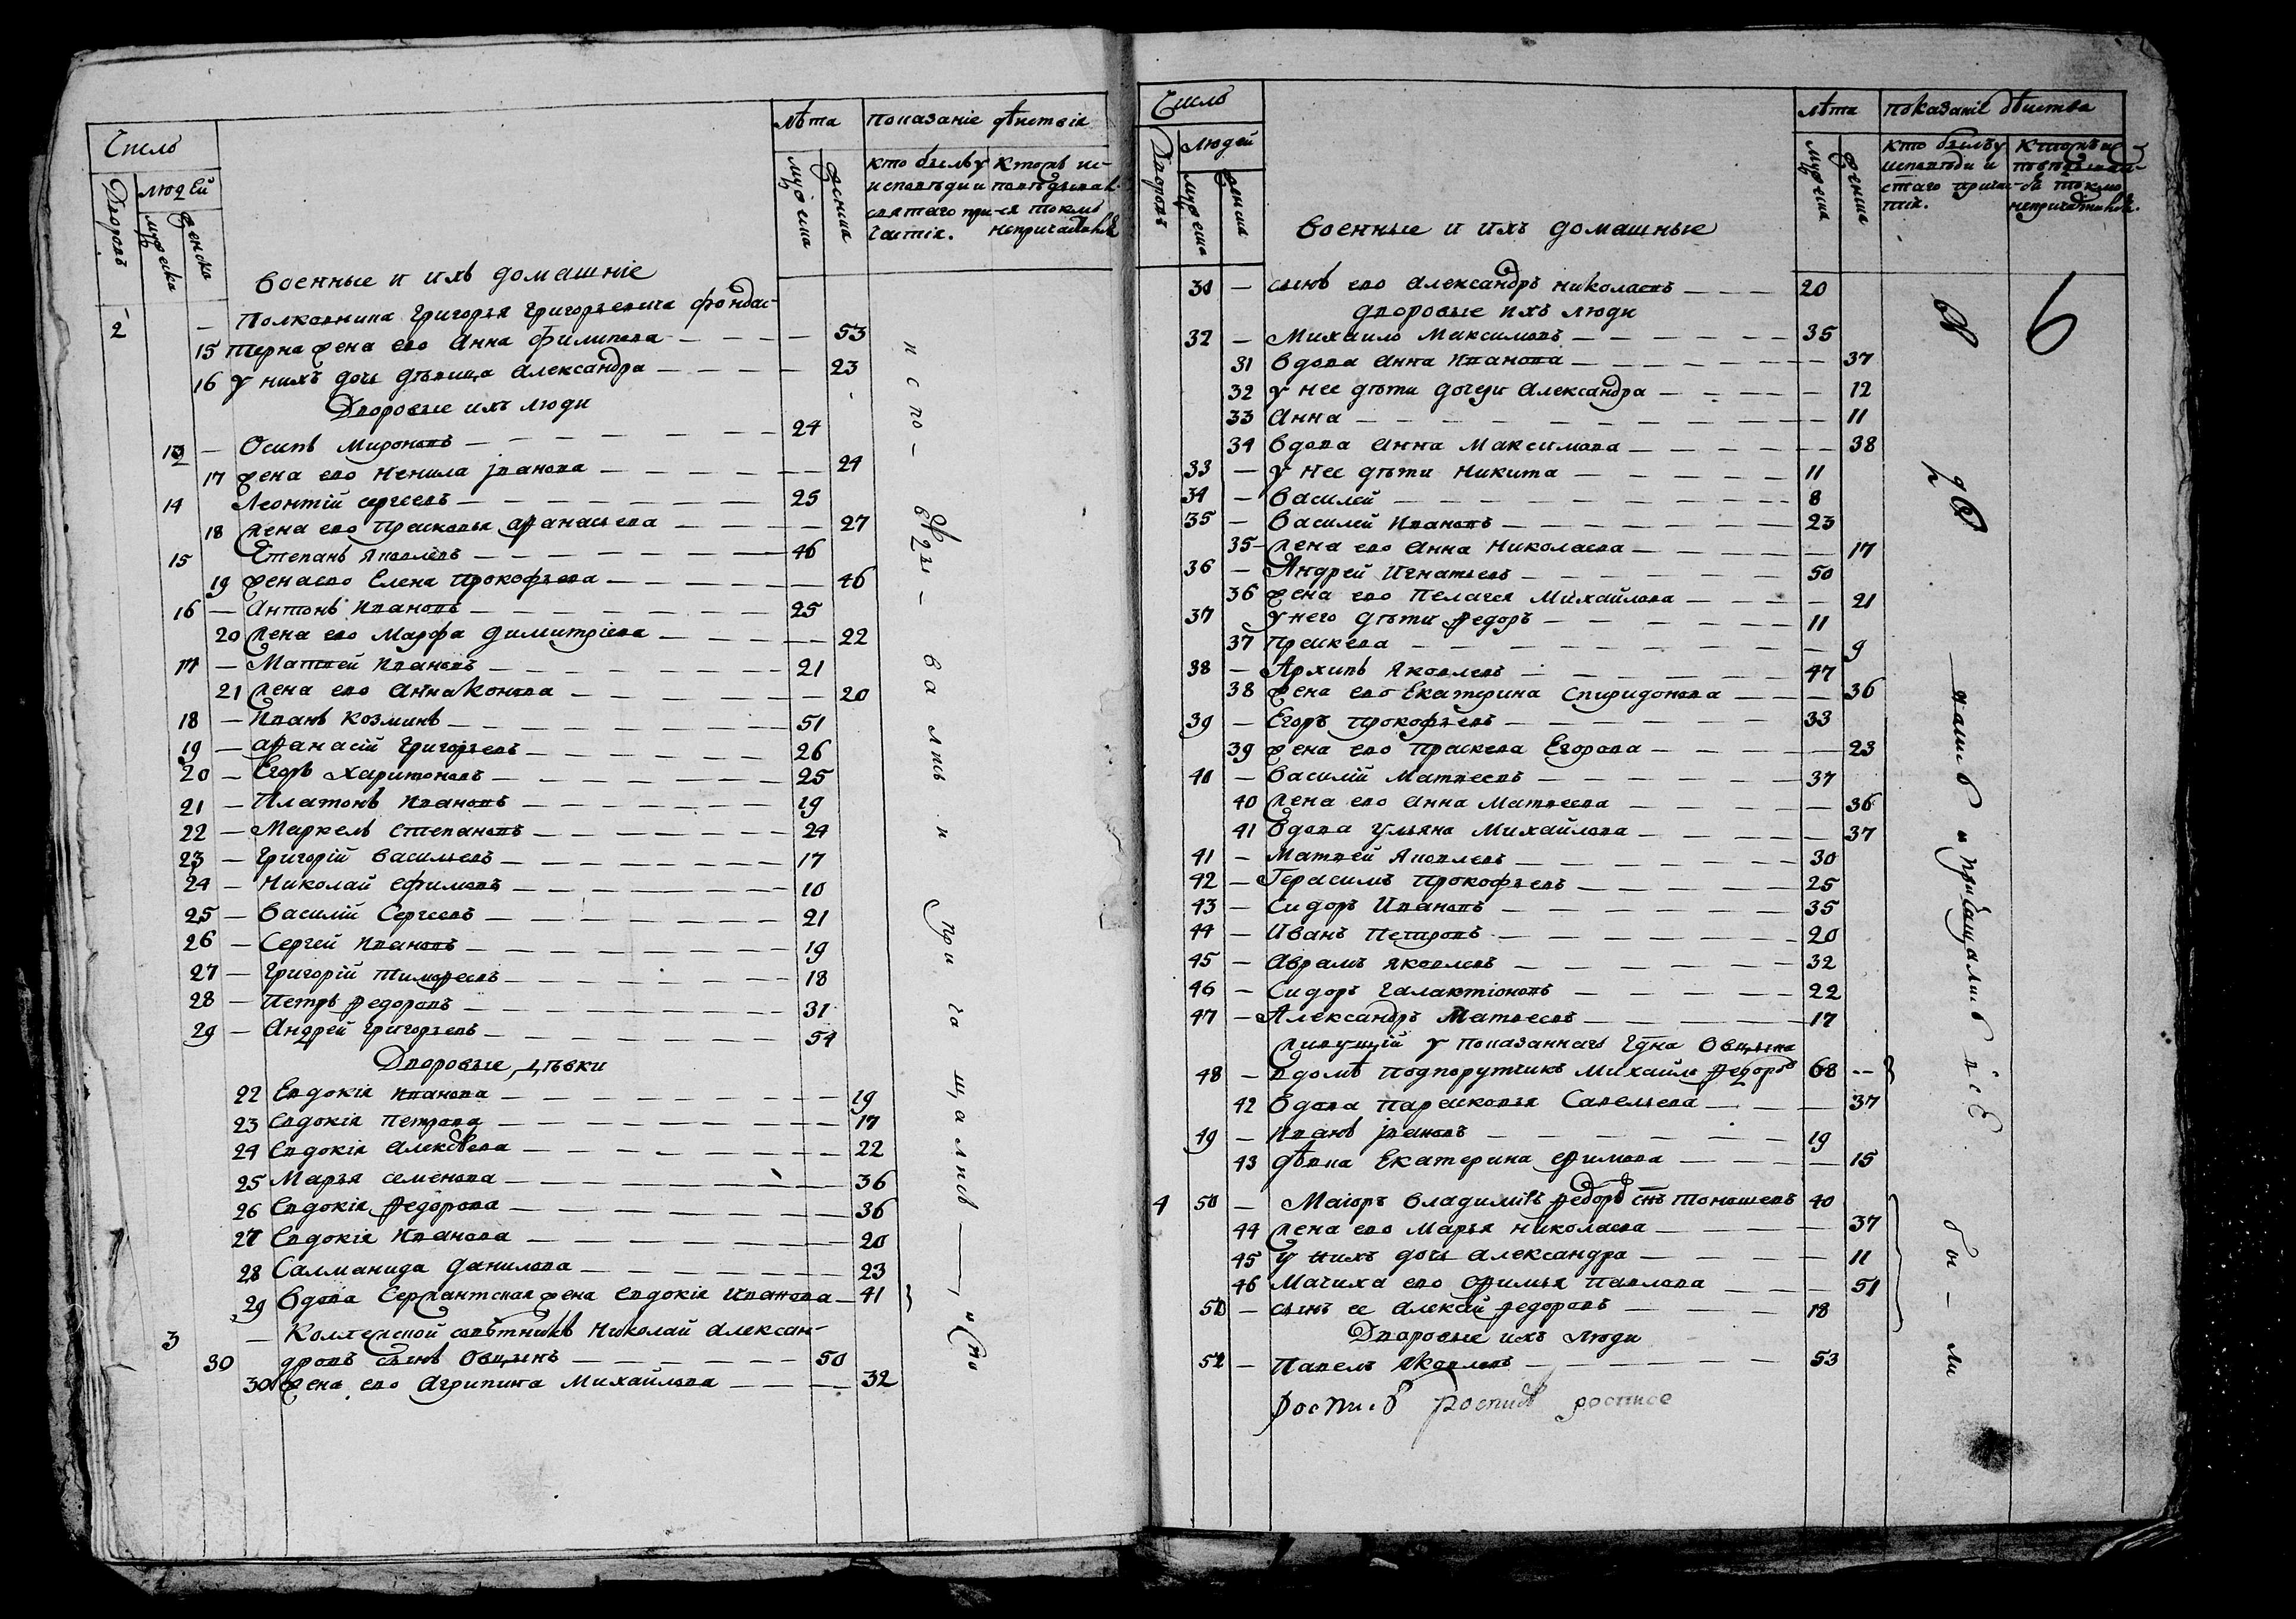 Число
Дворовъ
людей
мужеска
женска
лѣта
мужеска
женска
Показаніе дѣйствія
кто былъ у исповѣди и святаго причастія.
Кто жъ исповѣдывался токмо непричастился
военные и ихъ домашніе
2 — Полковника Григорья Григорьевича фондас-
15 терна жена ево Анна Филипова — 53
16 у нихъ дочь дѣвица Александра — 23
Дворовые ихъ люди
13 — Осипъ Мироновъ — 24
17 жена ево Ненила Іванова — 24
14 Леонтій Сергеевъ — 25
18 жена ево Прасковья Афанасьева — 27
15 Степанъ Яковлевъ — 46
19 жена ево Елена Прокофьева — 46
16 — Антонъ Ивановъ — 25
20 жена ево Марфа Димитріева — 22
17 — Матвей Ивановъ — 21
21 жена ево Анна Конова — 20
18 — Иванъ Козминъ — 51
19 — Афанасій Григорьевъ — 26
20 — Егоръ Харитоновъ — 25
21 — Платонъ Ивановъ — 19
22 — Маркелъ Степановъ — 24
23 — Григорій Васильевъ — 17
24 — Николай Ефимовъ — 10
25 — Василій Сергеевъ — 21
26 — Сергей Ивановъ — 19
27 — Григорій Тимофеевъ — 18
28 — Петръ Федоровъ — 31
29 — Андрей Григорьевъ — 54
Дворовые дѣвки
22 Евдокія Иванова — 19
23 Евдокія Петрова — 17
24 Евдокія Алексѣева — 22
25 Марья Семенова — 36
26 Евдокія Федорова — 36
27 Евдокія Иванова — 20
28 Салманида Данилова — 23
29 Вдова Сержантская жена Евдокія Иванова — 41
3 — Коллежской совѣтникъ Николай Алексан-
30 дровъ сынъ Овцынъ — 50
30 жена ево Агрипина Михайлова — 32
исповѣдывались и причащались
Число
Дворовъ
людей
мужеска
женска
лѣта
мужеска
женска
показаніе дѣйства
кто былъ у исповѣди и стаго причастія.
военные и ихъ домашные
6
31 — сынъ ево Александръ Николаевъ — 20
дворовые ихъ люди
32 — Михайло Максимовъ — 35
31 вдова Анна Иванова — 37
32 у нее дѣти дочери Александра — 12
33 Анна — 11
34 вдова Анна Максимова — 38
33 — у нее дѣти Никита — 11
34 — Василей — 8
35 — Василей Ивановъ — 23
35 — жена ево Анна Николаева — 17
36 — Андрей Игнатьевъ — 50
36 жена ево Пелагея Михайлова — 21
37 у него дѣти Федоръ — 11
37 Праскева — 9
38 — Архипъ Яковлевъ — 47
38 жена ево Екатерина Спиридонова — 36
39 — Егоръ Прокофьевъ — 33
39 жена ево Праскева Егорова — 23
40 — Василій Матвеевъ — 37
40 жена ево Анна Матвеева — 36
41 Вдова Ульяна Михайлова — 37
41 — Матвей Яковлевъ — 30
42 — Герасимъ Прокофьевъ — 25
43 — Сидоръ Ивановъ — 35
44 — Иванъ Петровъ — 20
45 — Аврамъ Яковлевъ — 32
46 — Сидоръ Галактіоновъ — 22
47 — Александръ Матвеевъ — 17
живущій у показаннаго Гдна Овцына
48 — вдомѣ Подпорутчикъ Михайло Федоровъ 68
42 Вдова Парасковья Савельева — 37
49 — Иванъ Івановъ — 19
43 дѣвка Екатерина Ефимова — 15
4 50 — Маіоръ Владимиръ Федоровъ снъ Тоношевъ 40
44 жена ево Марья Николаева — 37
45 у нихъ дочь Александра — 11
46 Мачиха ево Ефимья Павлова — 51
51 — сынъ ее Алексѣй Федоровъ — 18
Дворовые ихъ люди
52 — Павелъ Яковлевъ — 53
роспись роспись росписе
и причащались всѣ
бы-ли